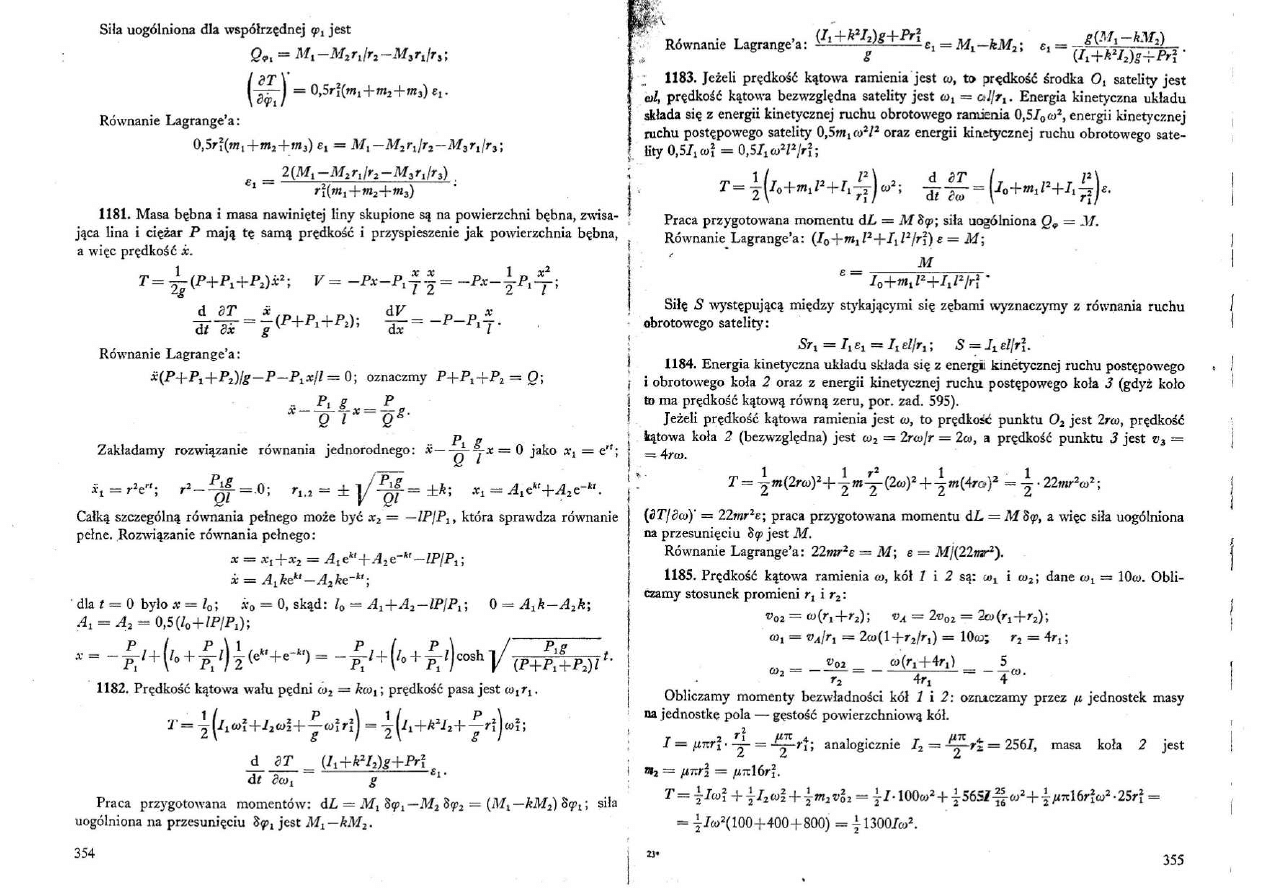 Siła uogólniona dla współrzędnej φ₁ jest
Q_φ₁ = M₁−M₂r₁/r₂−M₃r₁/r₃;
(∂T/∂φ̇₁)˙ = 0,5r₁²(m₁+m₂+m₃) ε₁.
Równanie Lagrange'a:
0,5r₁²(m₁+m₂+m₃) ε₁ = M₁−M₂r₁/r₂−M₃r₁/r₃;
ε₁ = 2(M₁−M₂r₁/r₂−M₃r₁/r₃) / r₁²(m₁+m₂+m₃) .
1181. Masa bębna i masa nawiniętej liny skupione są na powierzchni bębna, zwisa-
jąca lina i ciężar P mają tę samą prędkość i przyspieszenie jak powierzchnia bębna,
a więc prędkość ẋ.
T = 1/2g (P+P₁+P₂)ẋ²; V = −Px−P₁ x/l x/2 = −Px− 1/2 P₁ x²/l ;
d/dt ∂T/∂ẋ = ẍ/g (P+P₁+P₂); dV/dx = −P−P₁ x/l .
Równanie Lagrange'a:
ẍ(P+P₁+P₂)/g−P−P₁x/l = 0; oznaczmy P+P₁+P₂ = Q;
ẍ− P₁/Q g/l x = P/Q g.
Zakładamy rozwiązanie równania jednorodnego: ẍ− P₁/Q g/l x = 0 jako x₁ = eʳᵗ;
ẍ₁ = r²eʳᵗ; r²− P₁g/Ql = 0; r₁,₂ = ± √(P₁g/Ql) = ±k; x₁ = A₁eᵏᵗ+A₂e⁻ᵏᵗ.
Całką szczególną równania pełnego może być x₂ = −lP/P₁, która sprawdza równanie
pełne. Rozwiązanie równania pełnego:
x = x₁+x₂ = A₁eᵏᵗ+A₂e⁻ᵏᵗ−lP/P₁;
ẋ = A₁keᵏᵗ−A₂ke⁻ᵏᵗ;
dla t = 0 było x = l₀; ẋ₀ = 0, skąd: l₀ = A₁+A₂−lP/P₁; 0 = A₁k−A₂k;
A₁ = A₂ = 0,5(l₀+lP/P₁);
x = − P/P₁ l+(l₀+ P/P₁ l) 1/2 (eᵏᵗ+e⁻ᵏᵗ) = − P/P₁ l+(l₀+ P/P₁ l) cosh √(P₁g/(P+P₁+P₂)l) t.
1182. Prędkość kątowa wału pędni ω₂ = kω₁; prędkość pasa jest ω₁r₁.
T = 1/2 (I₁ω₁²+I₂ω₂²+ P/g ω₁²r₁²) = 1/2 (I₁+k²I₂+ P/g r₁²)ω₁²;
d/dt ∂T/∂ω₁ = (I₁+k²I₂)g+Pr₁² / g ε₁.
Praca przygotowana momentów: dL = M₁ δφ₁−M₂ δφ₂ = (M₁−kM₂) δφ₁; siła
uogólniona na przesunięciu δφ₁ jest M₁−kM₂.
354
Równanie Lagrange'a: (I₁+k²I₂)g+Pr₁² / g ε₁ = M₁−kM₂; ε₁ = g(M₁−kM₂) / (I₁+k²I₂)g+Pr₁² .
1183. Jeżeli prędkość kątowa ramienia jest ω, to prędkość środka O₁ satelity jest
ωl, prędkość kątowa bezwzględna satelity jest ω₁ = ωl/r₁. Energia kinetyczna układu
składa się z energii kinetycznej ruchu obrotowego ramienia 0,5I₀ω², energii kinetycznej
ruchu postępowego satelity 0,5m₁ω²l² oraz energii kinetycznej ruchu obrotowego sate-
lity 0,5I₁ω₁² = 0,5I₁ω²l²/r₁²;
T = 1/2 (I₀+m₁l²+I₁ l²/r₁²) ω²; d/dt ∂T/∂ω = (I₀+m₁l²+I₁ l²/r₁²) ε.
Praca przygotowana momentu dL = M δφ; siła uogólniona Q_φ = M.
Równanie Lagrange'a: (I₀+m₁l²+I₁l²/r₁²) ε = M;
ε = M / I₀+m₁l²+I₁l²/r₁² .
Siłę S występującą między stykającymi się zębami wyznaczymy z równania ruchu
obrotowego satelity:
Sr₁ = I₁ε₁ = I₁εl/r₁; S = I₁εl/r₁².
1184. Energia kinetyczna układu składa się z energii kinetycznej ruchu postępowego
i obrotowego koła 2 oraz z energii kinetycznej ruchu postępowego koła 3 (gdyż koło
to ma prędkość kątową równą zeru, por. zad. 595).
Jeżeli prędkość kątowa ramienia jest ω, to prędkość punktu O₂ jest 2rω, prędkość
kątowa koła 2 (bezwzględna) jest ω₂ = 2rω/r = 2ω, a prędkość punktu 3 jest v₃ =
= 4rω.
T = 1/2 m(2rω)²+ 1/2 m r²/2 (2ω)²+ 1/2 m(4rω)² = 1/2 · 22mr²ω²;
(∂T/∂ω)˙ = 22mr²ε; praca przygotowana momentu dL = M δφ, a więc siła uogólniona
na przesunięciu δφ jest M.
Równanie Lagrange'a: 22mr²ε = M; ε = M/(22mr²).
1185. Prędkość kątowa ramienia ω, kół 1 i 2 są: ω₁ i ω₂; dane ω₁ = 10ω. Obli-
czamy stosunek promieni r₁ i r₂:
v₀₂ = ω(r₁+r₂); v_A = 2v₀₂ = 2ω(r₁+r₂);
ω₁ = v_A/r₁ = 2ω(1+r₂/r₁) = 10ω; r₂ = 4r₁;
ω₂ = − v₀₂/r₂ = − ω(r₁+4r₁)/4r₁ = − 5/4 ω.
Obliczamy momenty bezwładności kół 1 i 2: oznaczamy przez μ jednostek masy
na jednostkę pola — gęstość powierzchniową kół.
I = μπr₁² · r₁²/2 = μπ/2 r₁⁴; analogicznie I₂ = μπ/2 r₂⁴ = 256I, masa koła 2 jest
m₂ = μπr₂² = μπ16r₁².
T = 1/2 Iω₁² + 1/2 I₂ω₂² + 1/2 m₂v₀₂² = 1/2 I·100ω² + 1/2 565I 25/16 ω² + 1/2 μπ16r₁²ω²·25r₁² =
= 1/2 Iω²(100+400+800) = 1/2 1300Iω².
23*
355